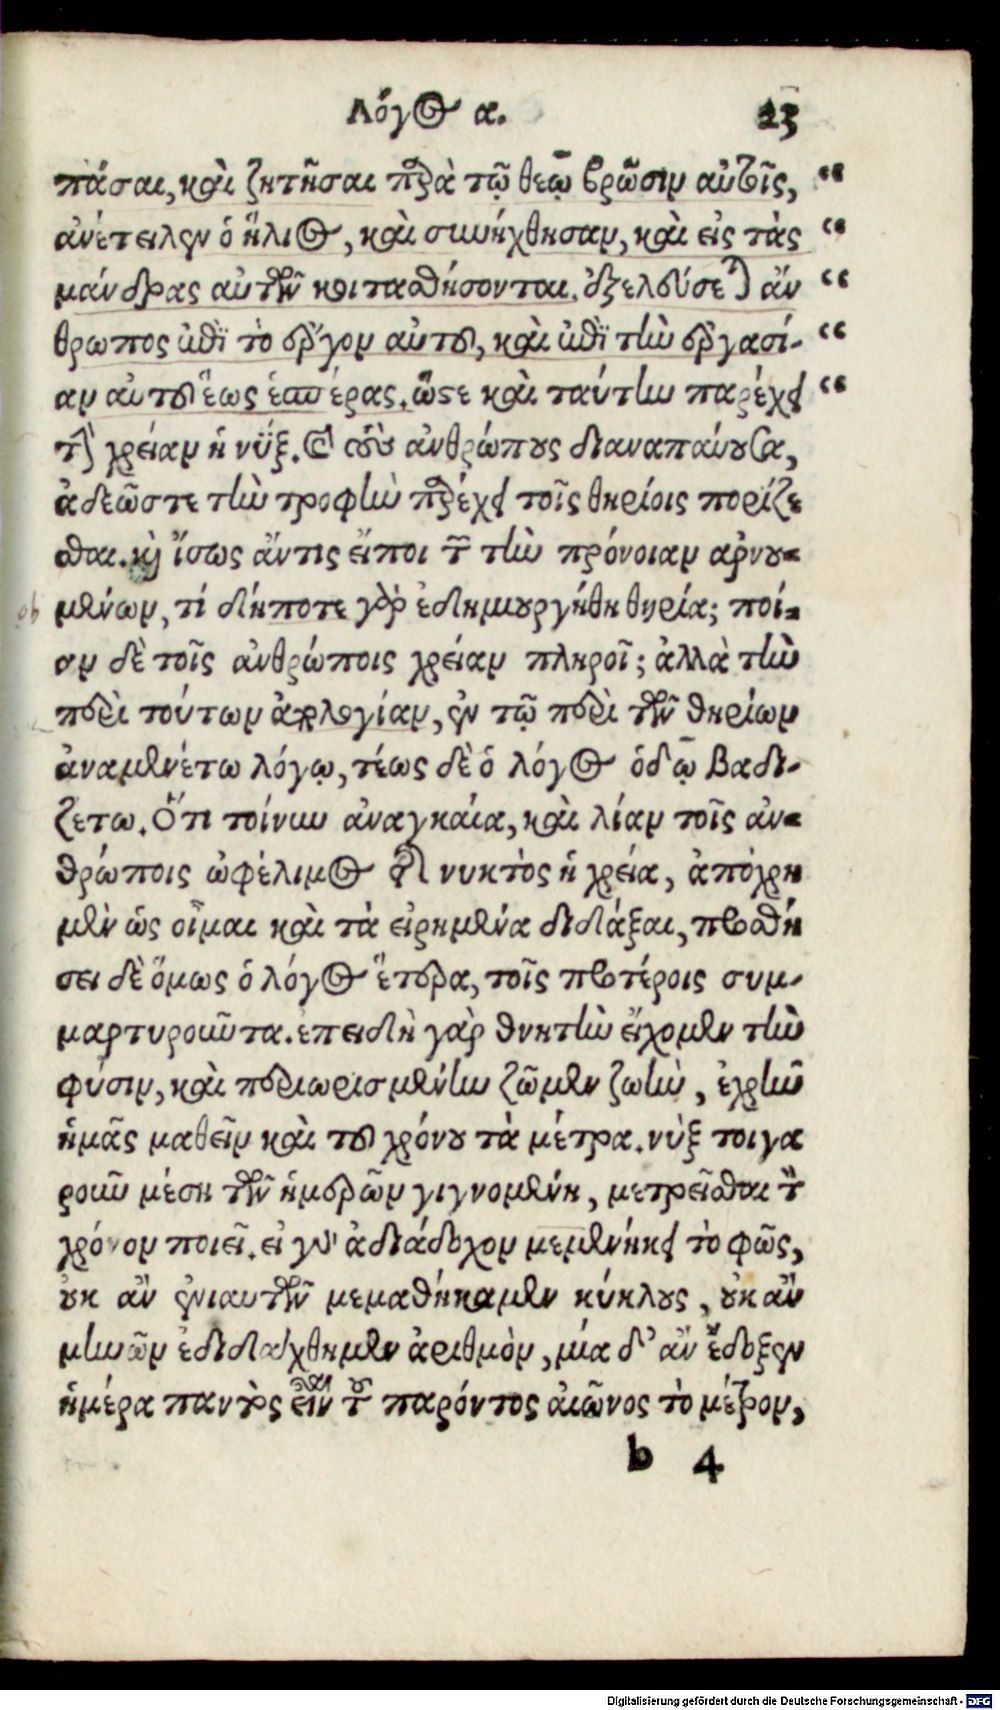 Λόγος α. 23
πάσαι, καὶ ζητῆσαι παρὰ τῷ θεῷ βρῶσιν αὐτοῖς, "
ἀνέτειλεν ὁ ἥλιος, καὶ συνήχθησαν, καὶ εἰς τὰς "
μάνδρας αὐτῶν κοιτασθήσονται. ἐξελεύσεται ἄν "
θρωπος ἐπὶ τὸ ἔργον αὐτοῦ, καὶ ἐπὶ τὴν ἐργασί- "
αν αὐτοῦ ἕως ἑσπέρας. ὥστε καὶ ταύτην παρέχει "
τὴν χρείαν ἡ νὺξ. καὶ τοὺς ἀνθρώπους διαναπαύουσα,
ἀδεῶστε τὴν τροφὴν παρέχει τοῖς θηρίοις πορίζε
σθαι. καὶ ἴσως ἄντις εἴποι τῶν τὴν πρόνοιαν ἀρνου-
μένων, τί δήποτε γὰρ ἐδημιουργήθη θηρία; ποί-
αν δὲ τοῖς ἀνθρώποις χρείαν πληροῖ; ἀλλὰ τὴν
περὶ τούτων ἀπολογίαν, ἐν τῷ περὶ τῶν θηρίων
ἀναμενέτω λόγῳ, τέως δὲ ὁ λόγος ὁδῷ βαδι-
ζετω. Ὅτι τοίνυν ἀναγκαία, καὶ λίαν τοῖς ἀν-
θρώποις ὠφέλιμος τῆς νυκτὸς ἡ χρεία, ἀπόχρη
μὲν ὡς οἶμαι καὶ τὰ εἰρημένα διδάξαι, προσθή
σει δὲ ὅμως ὁ λόγος ἕτερα, τοῖς προτέροις συμ-
μαρτυροῦντα. ἐπειδὴ γὰρ θνητὴν εἴχομεν τὴν
φύσιν, καὶ περιωρισμένην ζῶμεν ζωὴν, ἐχρῆν
ἡμᾶς μαθεῖν καὶ τοῦ χρόνου τὰ μέτρα. νὺξ τοιγα
ροῦν μέση τῶν ἡμερῶν γιγνομένη, μετρεῖσθαι τὸν
χρόνον ποιεῖ. εἰ γὰρ ἀδιάδοχον μεμενήκει τὸ φῶς,
οὐκ ἂν ἐνιαυτῶν μεμαθήκαμεν κύκλους, οὐκ ἂν
μηνῶν ἐδιδάχθημεν ἀριθμὸν, μία δ' ἂν ἔδοξεν
ἡμέρα παντὸς εἶναι τοῦ παρόντος αἰῶνος τὸ μέτρον,
b 4
Digitalisierung gefördert durch die Deutsche Forschungsgemeinschaft - DFG